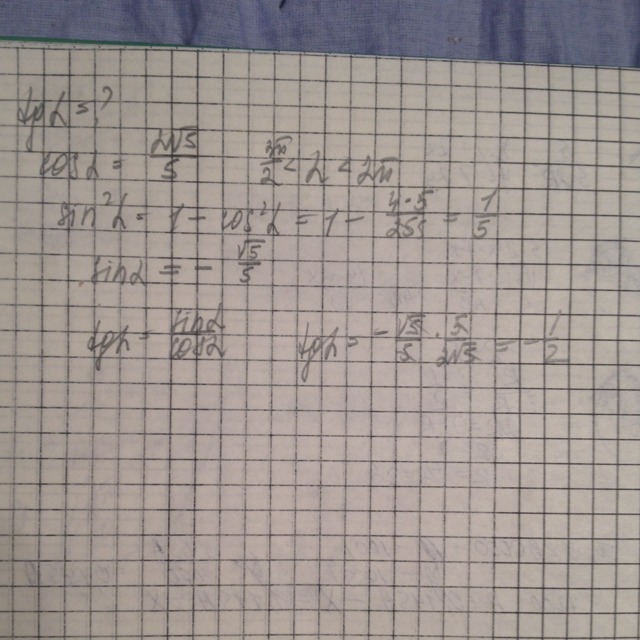 tgα = ?
cosα = 2√5/5   3π/2 < α < 2π
sin²α = 1 - cos²α = 1 - 4·5/25 = 1/5
sinα = - √5/5
tgα = sinα/cosα   tgα = - √5/5 · 5/2√5 = - 1/2